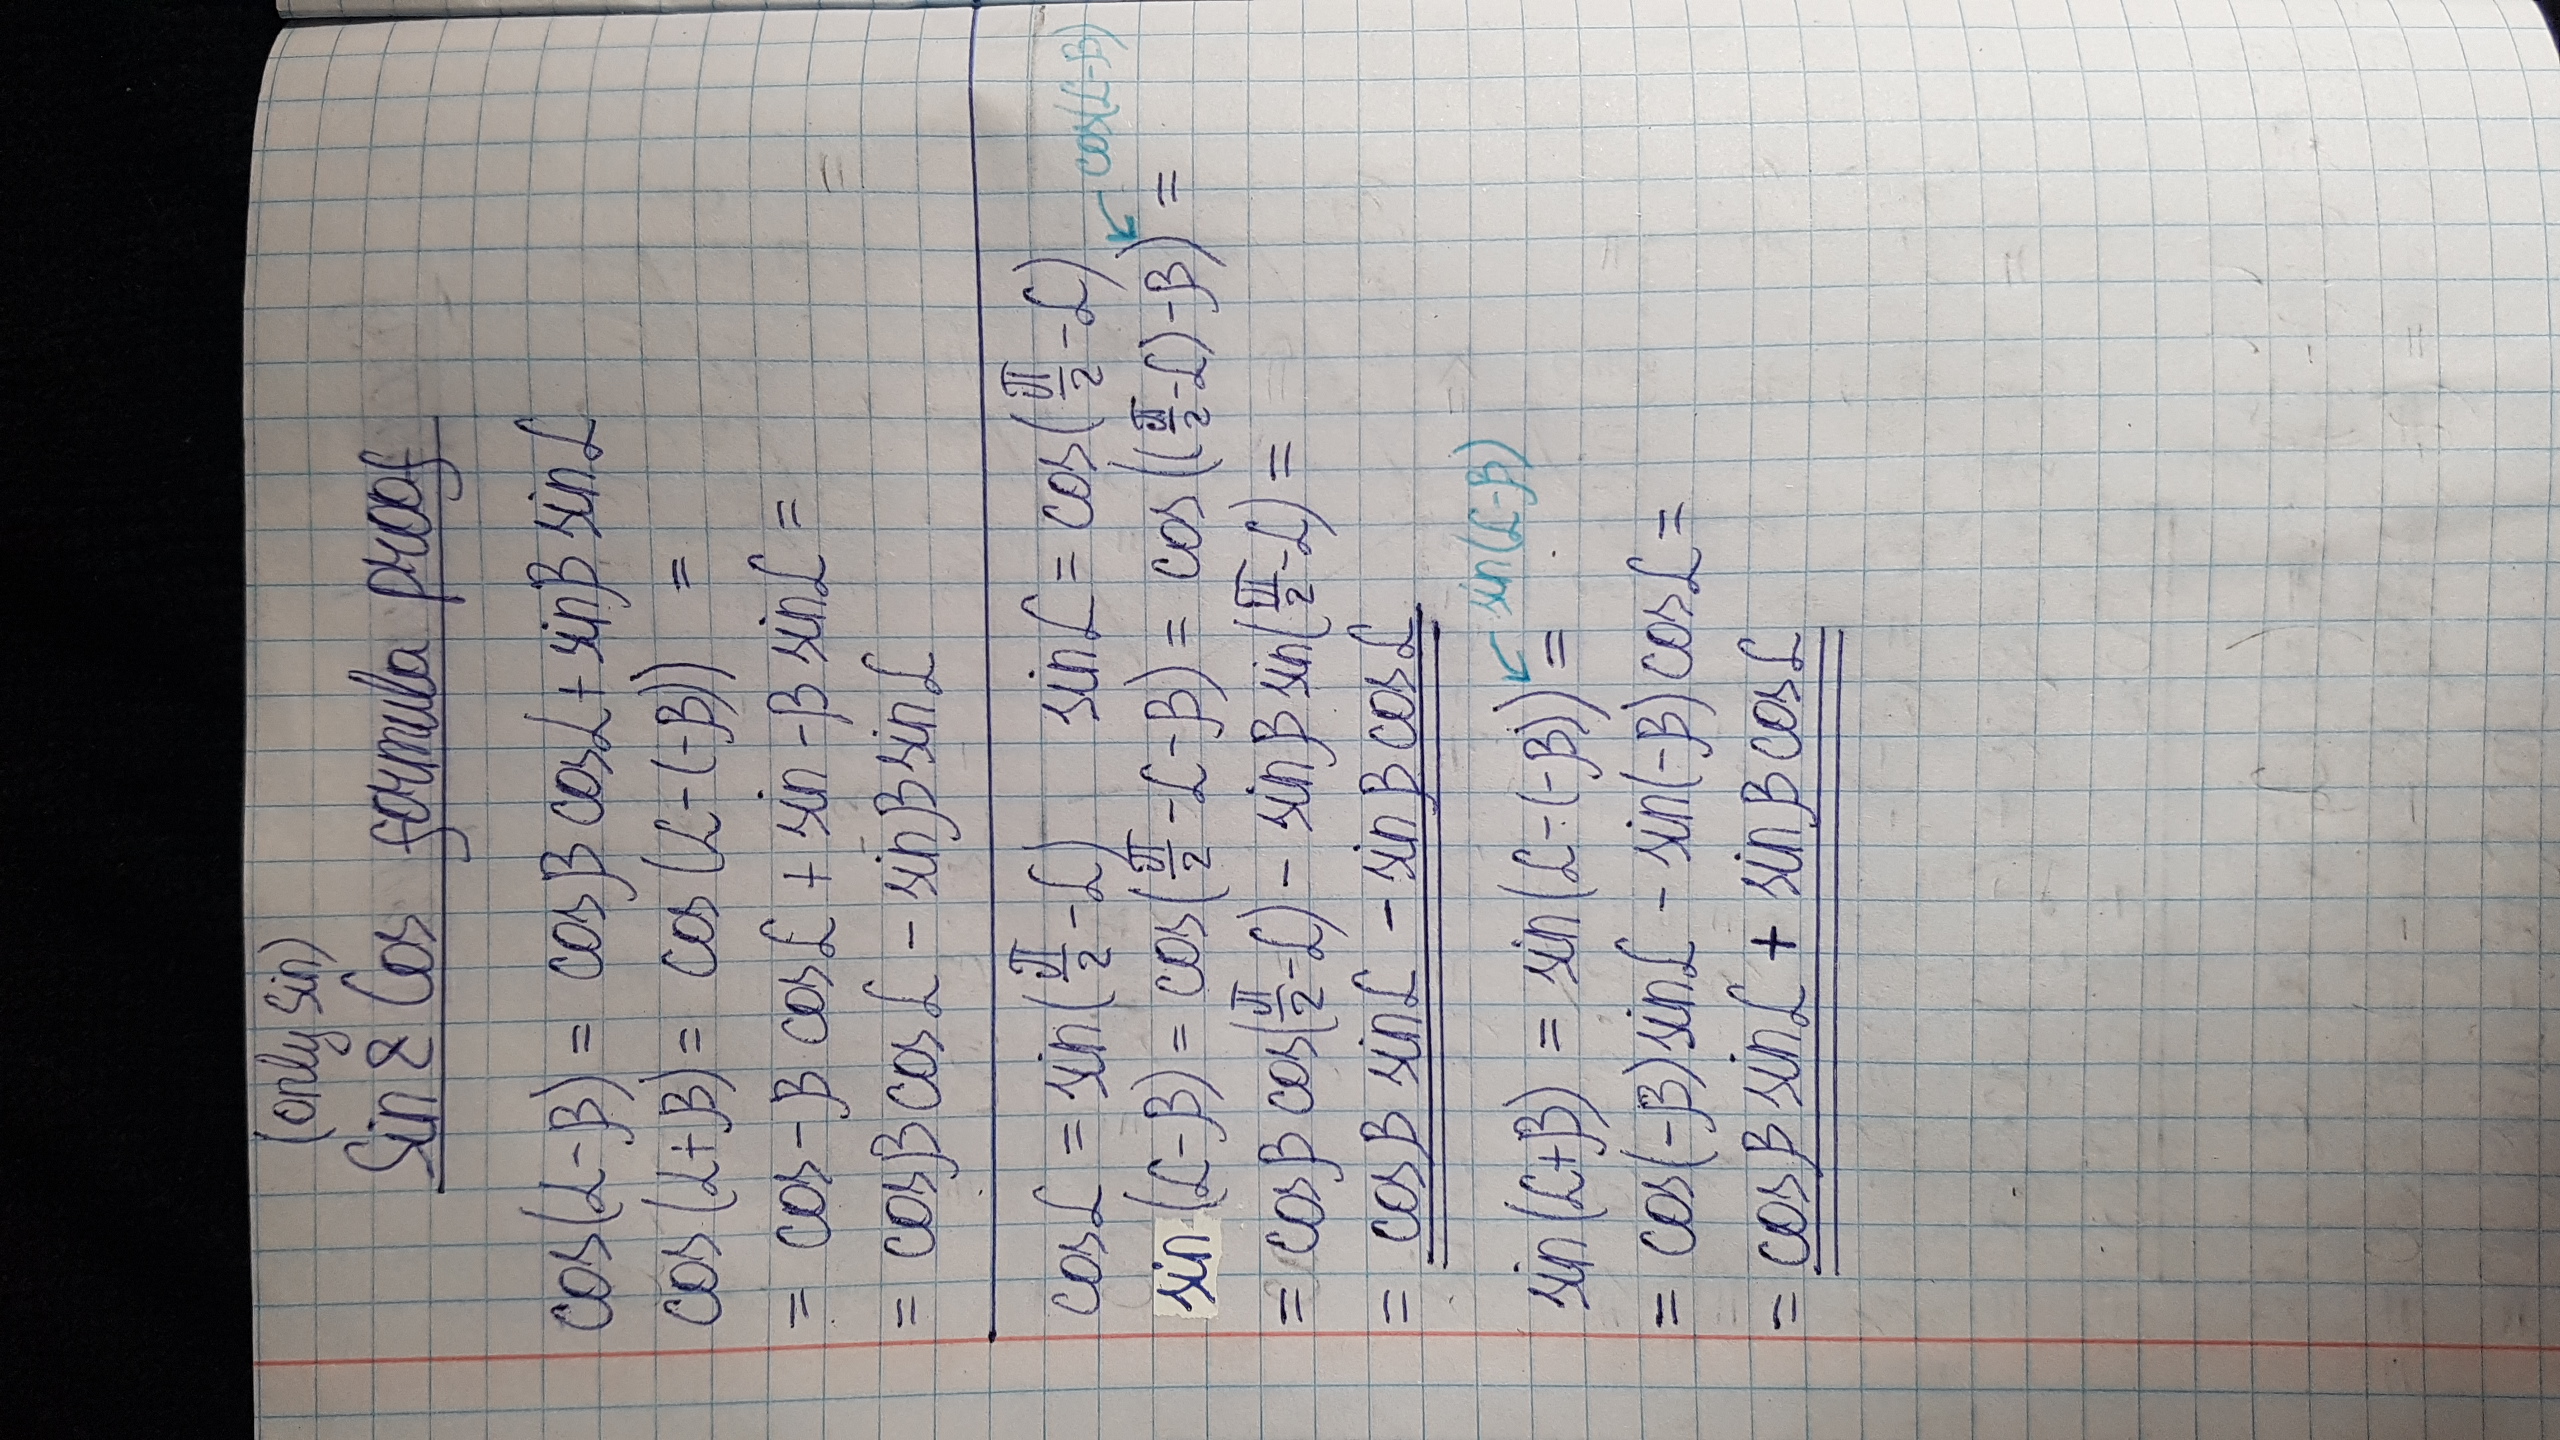 (only sin)
Sin & Cos formula proof
cos(α-β) = cosβ cosα + sinβ sinα
cos(α+β) = cos(α-(-β)) =
= cos-β cosα + sin-β sinα =
= cosβ cosα - sinβ sinα
cosα = sin(π/2 - α) sinα = cos(π/2 - α)
cos(α-β)
sin(α-β) = cos(π/2 - α - β) = cos((π/2 - α) - β) =
= cosβ cos(π/2 - α) - sinβ sin(π/2 - α) =
= cosβ sinα - sinβ cosα
sin(α-β)
sin(α+β) = sin(α-(-β)) =
= cos(-β) sinα - sin(-β) cosα =
= cosβ sinα + sinβ cosα